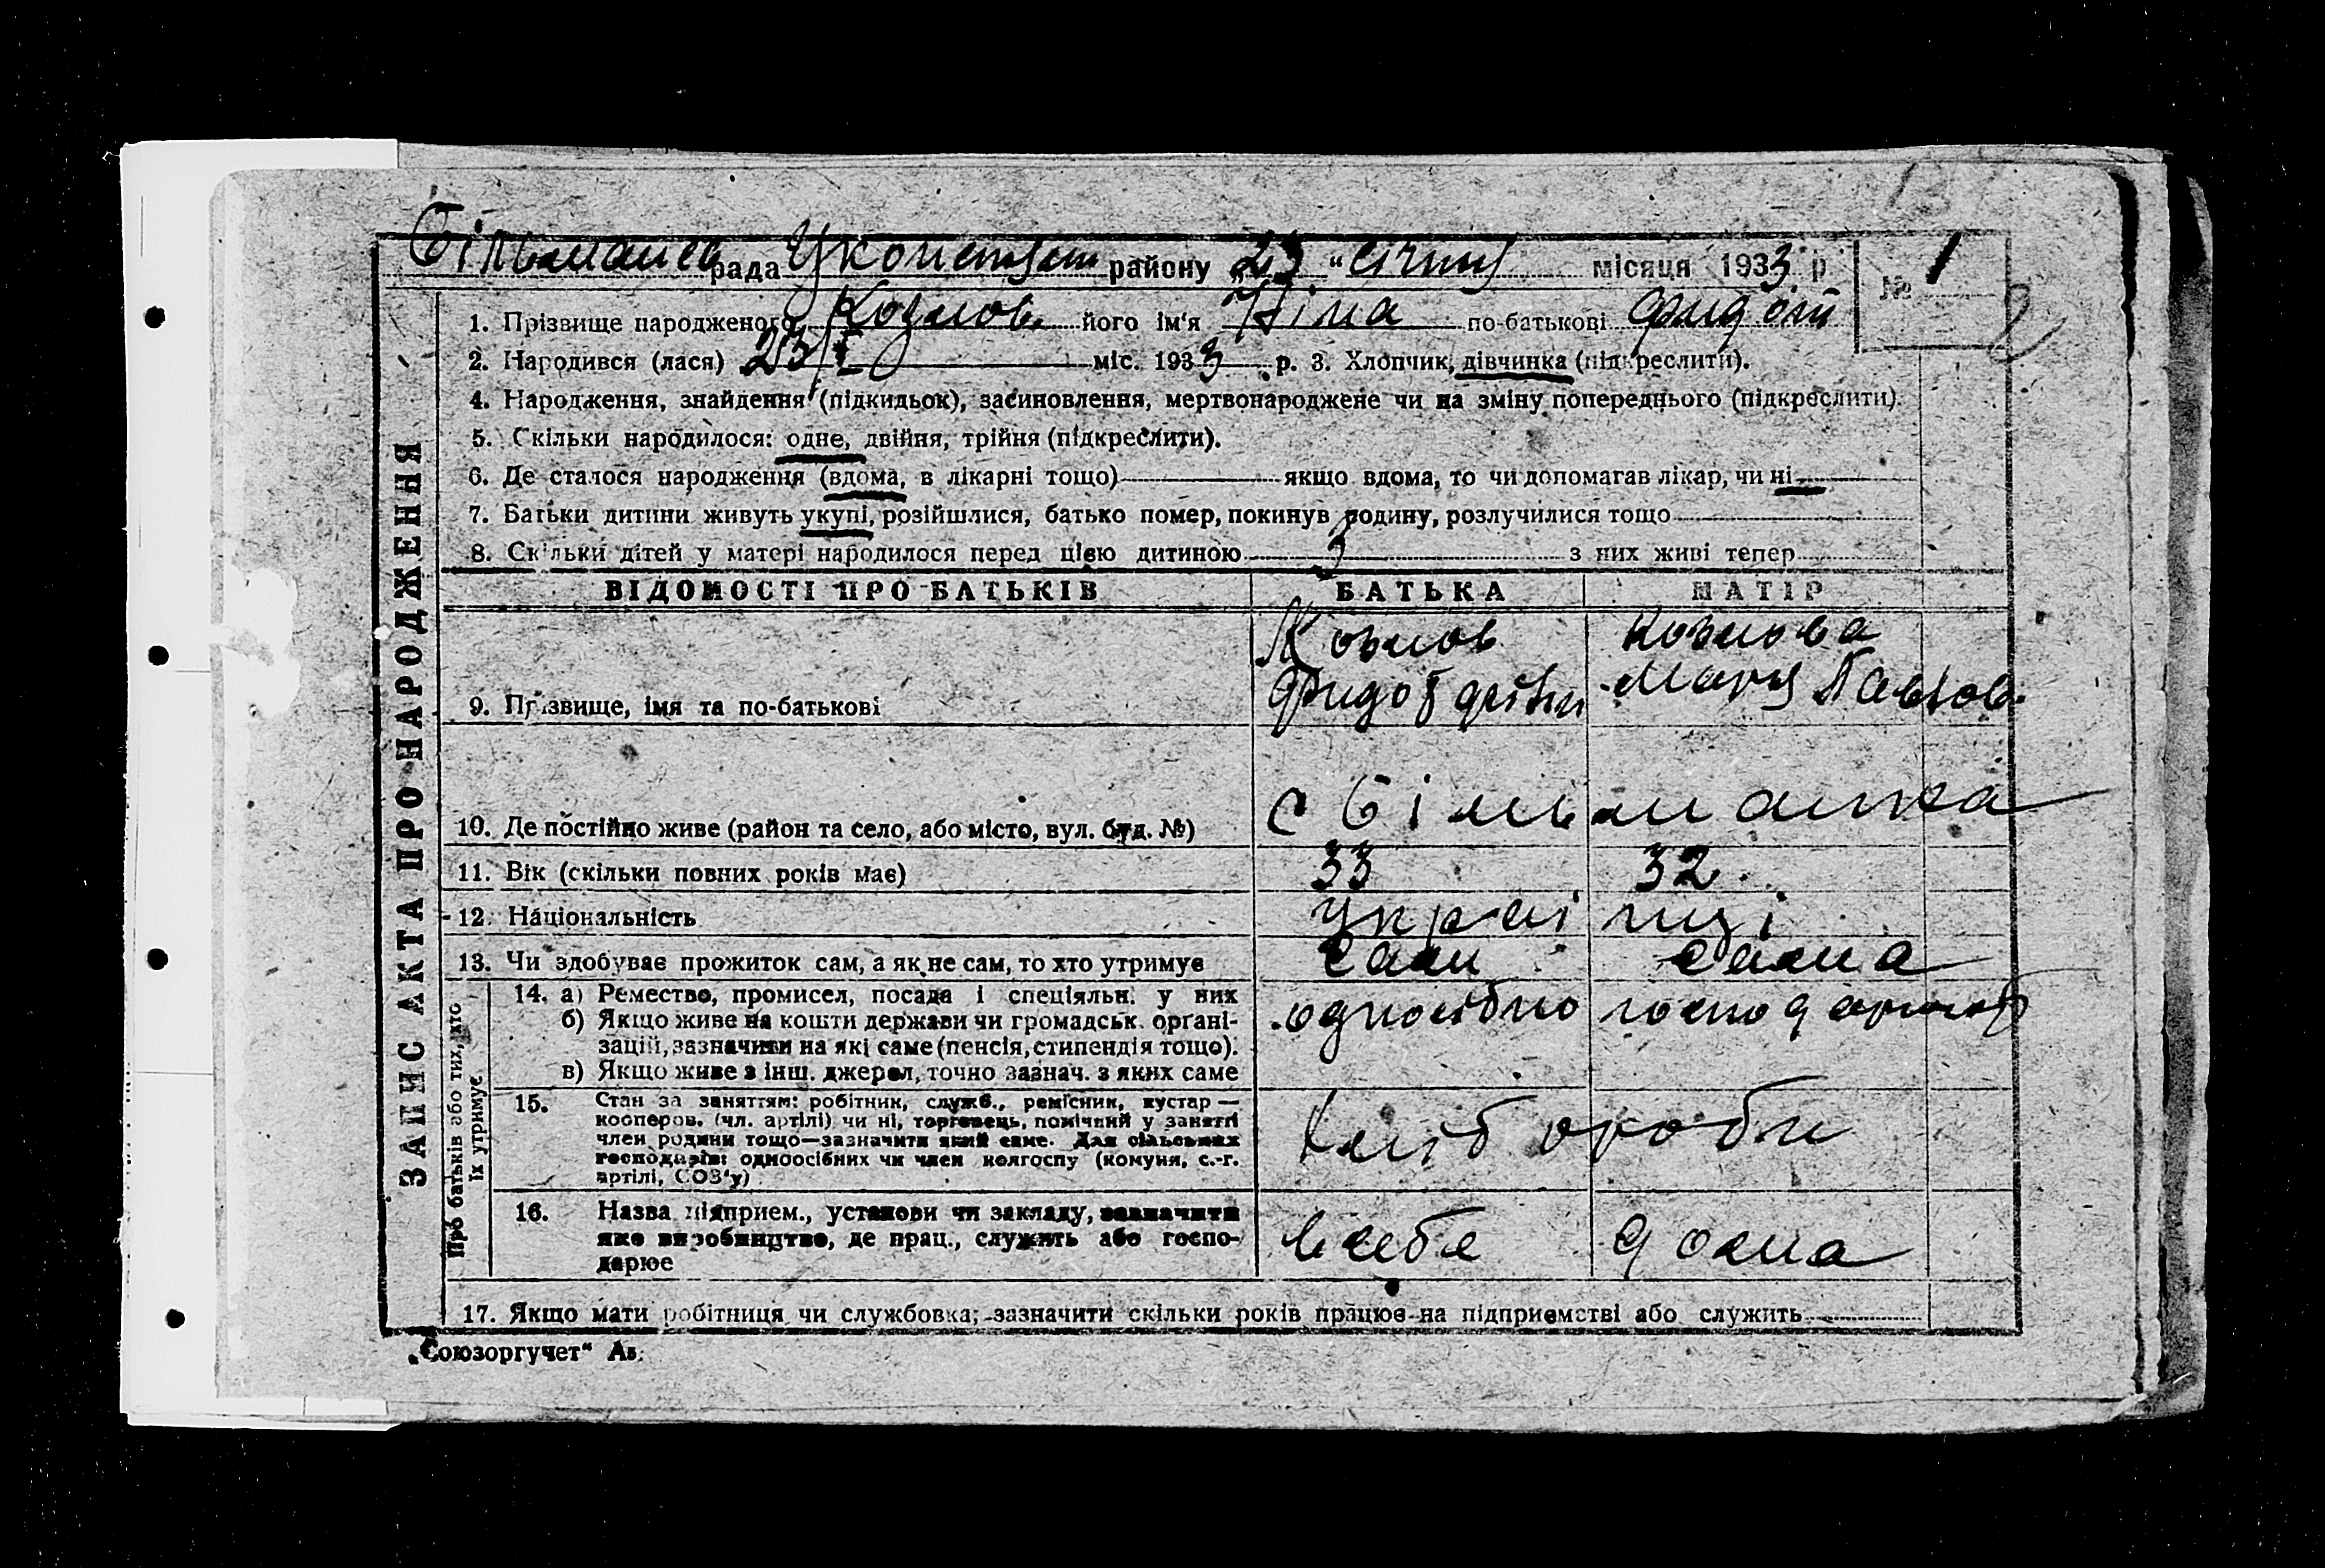 рада района 23 "січня місяця 1933 р № 1
1. Прізвище народженого Козлов його ім'я Ніна по-батькові
2. Народився (лася) 23/I міс. 1933 р. 3. Хлопчик, дівчинка (підкреслити).
4. Народження, знайдення (підкидьок), засиновлення, мертвонароджене чи на зміну попереднього (підкреслити).
5. Скільки народилося: одне, двійня, трійня (підкреслити).
6. Де сталося народження (вдома, в лікарні тощо) якщо вдома, то чи допомагав лікар, чи ні
7. Батьки дитини живуть укупі, розійшлися, батько помер, покинув родину, розлучилися тощо
8. Скільки дітей у матері народилося перед цією дитиною 3 з них живі тепер
ЗАПИС АКТА ПРО НАРОДЖЕННЯ
ВІДОМОСТІ ПРО БАТЬКІВ БАТЬКА МАТІР
Козлов Козлова
9. Прізвище, імя та по-батькові Мария Павлов.
10. Де постійно живе (район та село, або місто, вул. буд. №) с Більманка
11. Вік (скільки повних років має) 33 32.
12. Національність Украі нці
13. Чи здобуває прожиток сам, а як не сам, то хто утримує сам сама
Про батьків або тих, хто їх утримує
14. а) Ремество, промисел, посада і спеціяльн. у них одноосібно господарюют
б) Якщо живе на кошти держави чи громадськ. організацій, зазначити на які саме (пенсія, стипендія тощо).
в) Якщо живе з інш. джерел, точно зазнач. з яких саме
15. Стан за заняттям: робітник, служб., ремісник, кустар —
кооперов. (чл. артілі) чи ні, торговець, помічний у занятті
член родини тощо—зазначити який саме. Для сільських
господарів: одноосібних чи член колгоспу (комуни, с.-г.
артілі, СОЗ'у) хлібороби
16. Назва підприєм., установи чи закладу, зазначити
яке виробництво, де прац., служить або господарює в себе дома
17. Якщо мати робітниця чи службовка; зазначити скільки років працює на підприємстві або служить
„Союзоргучет"